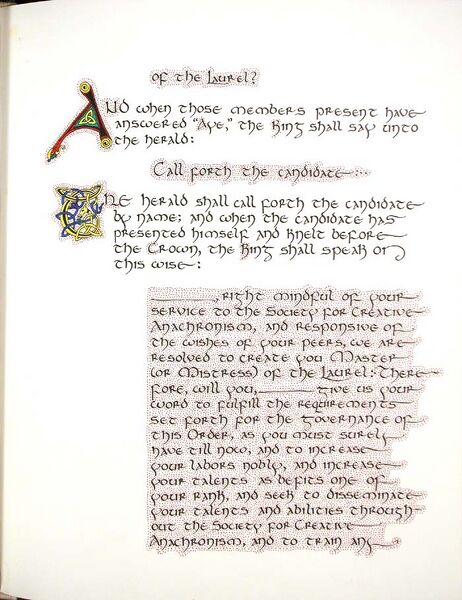 of the Laurel?
And when those members present have
answered "Aye," the King shall say unto
the herald:
Call forth the candidate
The herald shall call forth the candidate
by name; and when the candidate has
presented himself and knelt before
the Crown, the King shall speak on
this wise:
________, right mindful of your
service to the Society for Creative
Anachronism, and responsive of
the wishes of your peers, we are
resolved to create you Master
(or Mistress) of the Laurel: There
fore, will you, ________ give us your
word to fulfill the requirements
set forth for the governance of
this Order, as you must surely
have till now, and to increase
your labors nobly, and increase
your talents as befits one of
your rank, and seek to disseminate
your talents and abilities through
out the Society for Creative
Anachronism, and to train any